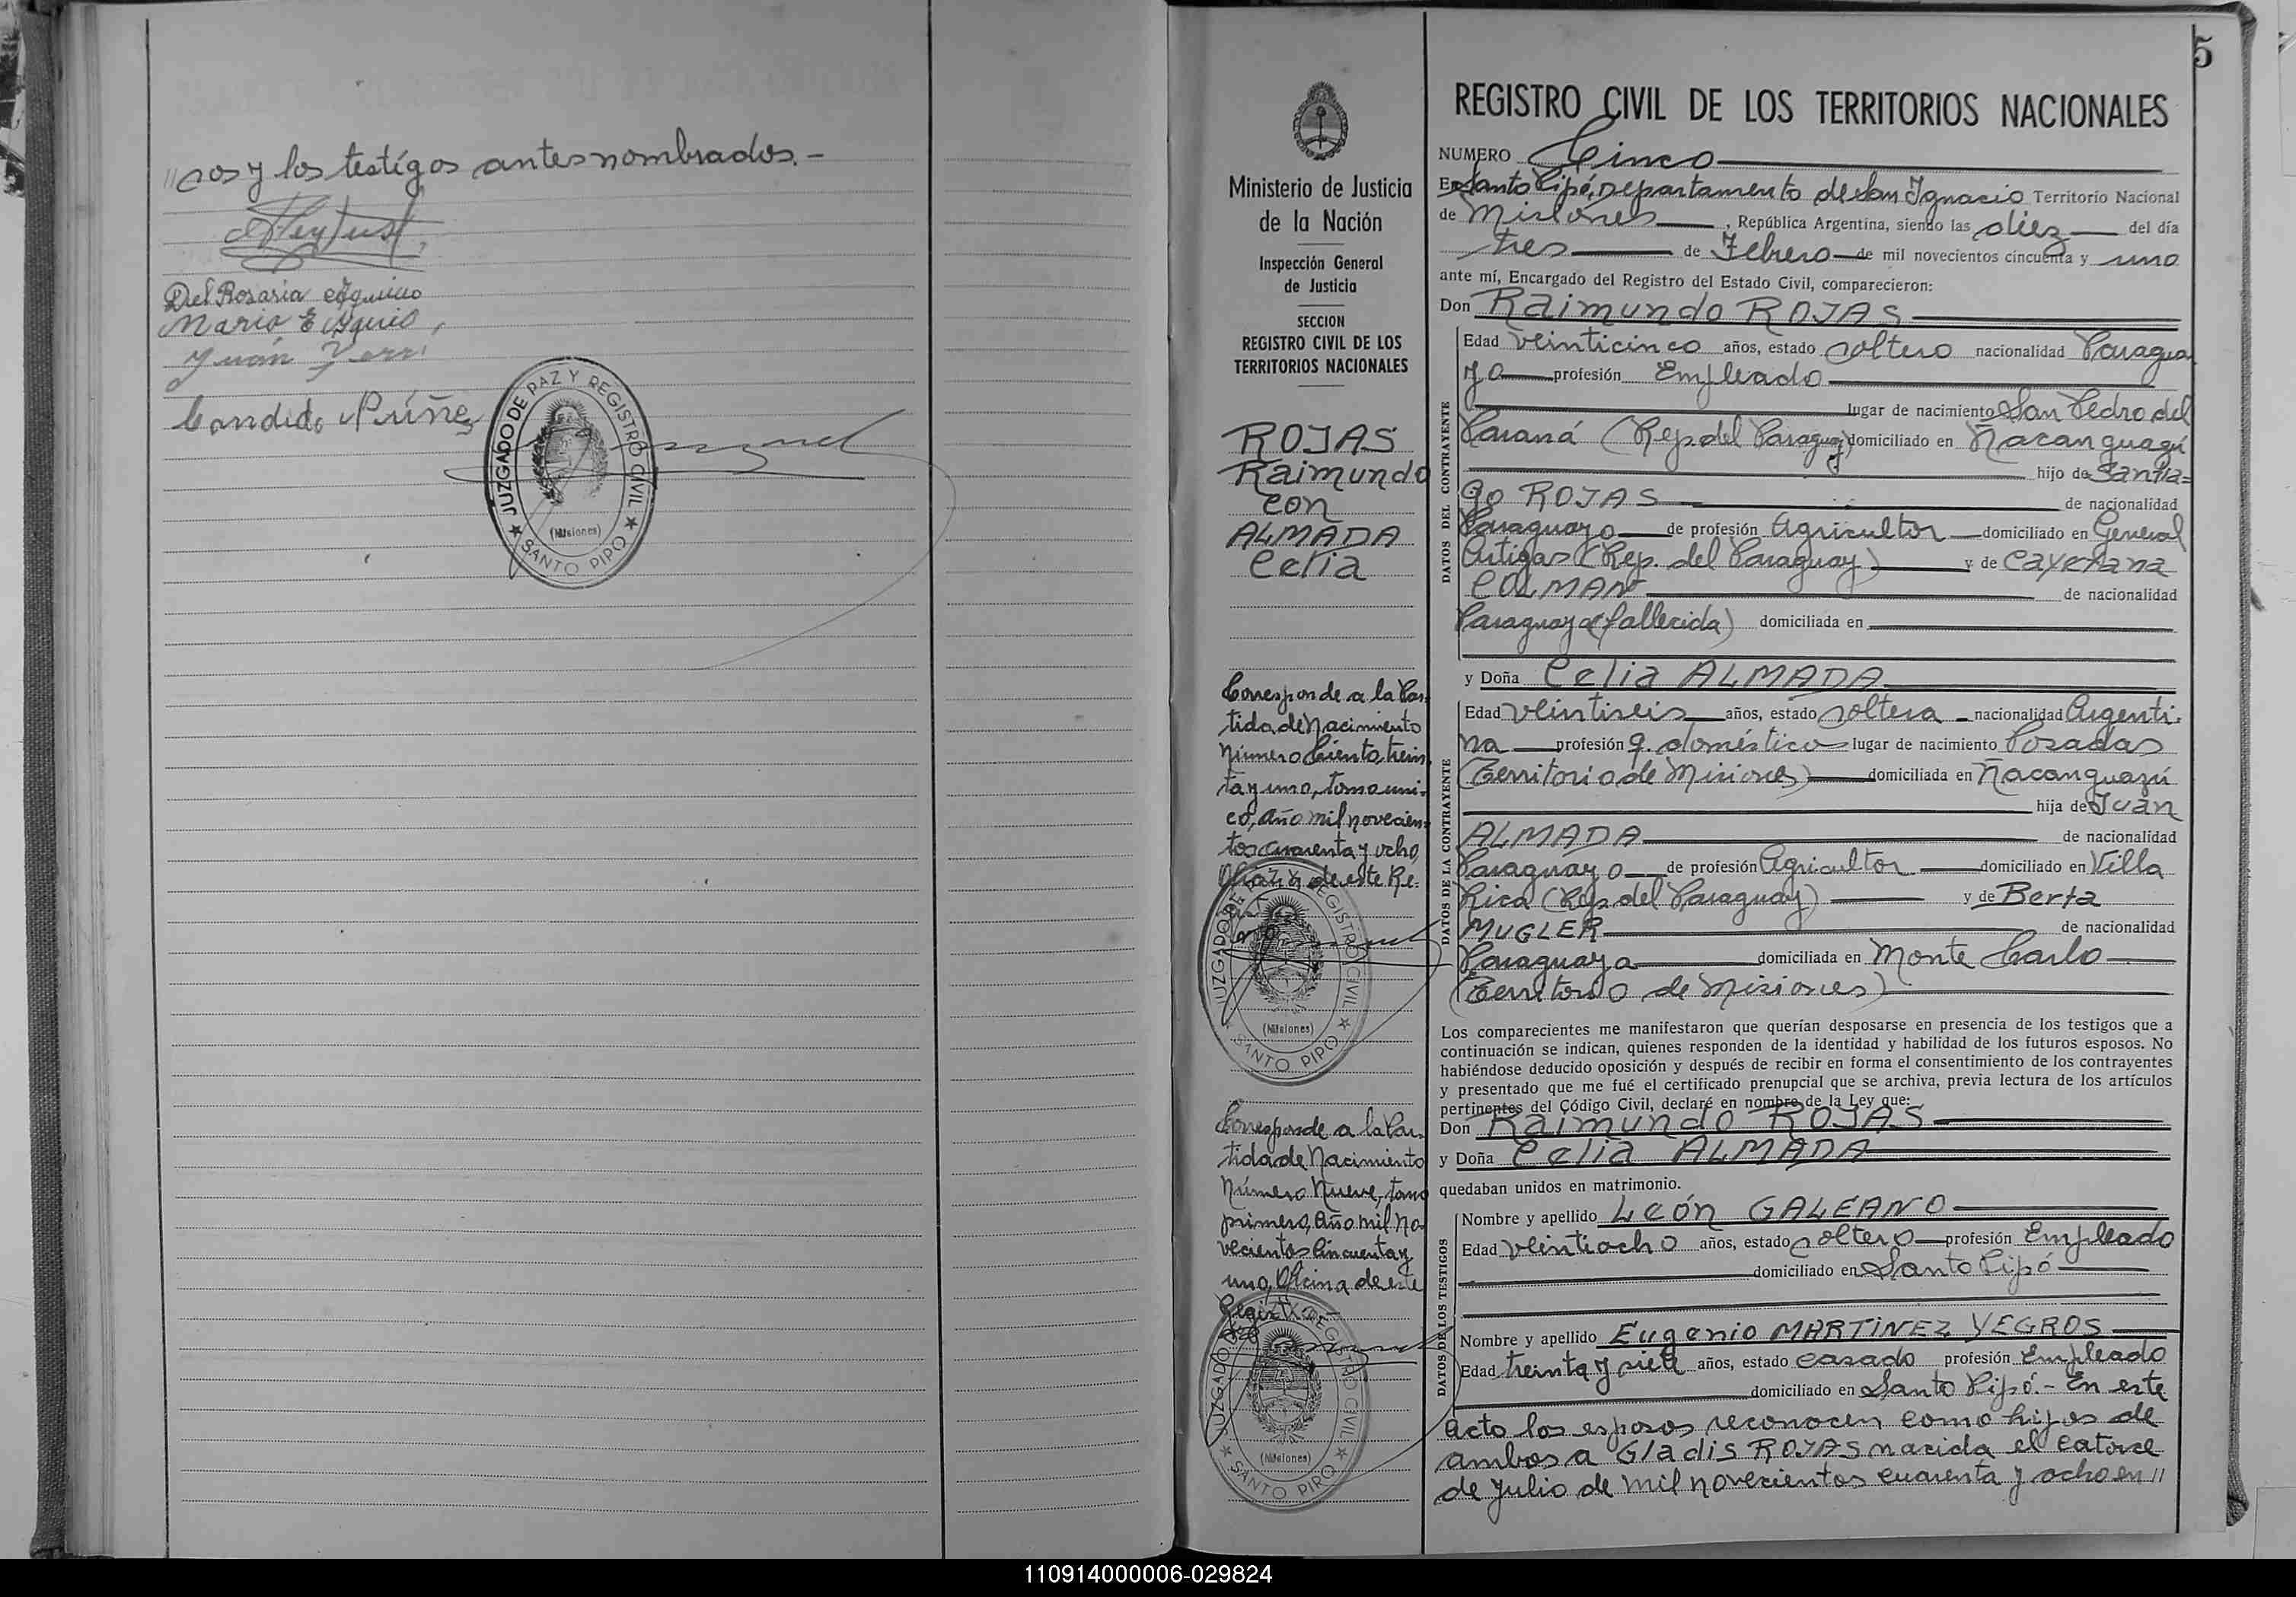 "cos y los testigos antes nombrados.-
Del Rosario
Mario E
Juán
Candido Núñez
JUZGADO DE PAZ Y REGISTRO CIVIL
(Misiones)
SANTO PIPO
5
Ministerio de Justicia
de la Nación
Inspección General
de Justicia
SECCION
REGISTRO CIVIL DE LOS
TERRITORIOS NACIONALES
ROJAS
Raimundo
con
ALMADA
Celia
Corresponde a la Par-
tida de Nacimiento
Número Ciento trein
ta y uno, tomo uni-
co, año mil novecien-
tos cuarenta y ocho,
Oficina de este Re-
JUZGADO DE PAZ Y REGISTRO CIVIL
(Misiones)
SANTO PIPO
Corresponde a la Par-
tida de Nacimiento
Número Nueve, tomo
primero, Año mil no
vecientos cincuenta y
uno, Oficina de este
Registro
JUZGADO DE PAZ Y REGISTRO CIVIL
(Misiones)
SANTO PIPO
REGISTRO CIVIL DE LOS TERRITORIOS NACIONALES
NUMERO Cinco
En Santo Pipó, Departamento de San Ignacio Territorio Nacional
de Misiones, República Argentina, siendo las diez del día
tres de Febrero de mil novecientos cincuenta y uno
ante mí, Encargado del Registro del Estado Civil, comparecieron:
Don Raimundo ROJAS
DATOS DEL CONTRAYENTE
Edad veinticinco años, estado soltero nacionalidad Paragua
yo profesión Empleado
lugar de nacimiento San Pedro del
Paraná (Rep. del Paraguay) domiciliado en Ñacanguazú
hijo de Santia=
go ROJAS de nacionalidad
Paraguayo de profesión Agricultor domiciliado en General
Artigas (Rep. del Paraguay) y de Cayetana
COLMAN de nacionalidad
Paraguaya (fallecida) domiciliada en
y Doña Celia ALMADA
DATOS DE LA CONTRAYENTE
Edad veintiseis años, estado soltera - nacionalidad Argenti-
na profesión q. doméstico lugar de nacimiento Posadas
(Territorio de Misiones) domiciliada en Ñacanguazú
hija de Juan
ALMADA de nacionalidad
Paraguayo de profesión Agricultor domiciliado en Villa
Rica (Rep. del Paraguay) y de Berta
MUGLER de nacionalidad
Paraguaya domiciliada en Monte Carlo
(Territorio de Misiones)
Los comparecientes me manifestaron que querían desposarse en presencia de los testigos que a
continuación se indican, quienes responden de la identidad y habilidad de los futuros esposos. No
habiéndose deducido oposición y después de recibir en forma el consentimiento de los contrayentes
y presentado que me fué el certificado prenupcial que se archiva, previa lectura de los artículos
pertinentes del Código Civil, declaré en nombre de la Ley que:
Don Raimundo ROJAS
y Doña Celia ALMADA
quedaban unidos en matrimonio.
DATOS DE LOS TESTIGOS
Nombre y apellido León GALEANO
Edad veintiocho años, estado soltero profesión Empleado
domiciliado en Santo Pipó
Nombre y apellido Eugenio MARTINEZ YEGROS
Edad treinta y siete años, estado casado profesión Empleado
domiciliado en Santo Pipó.- En este
acto los esposos reconocen como hijos de
ambos a Gladis ROJAS nacida el catorce
de Julio de mil novecientos cuarenta y ocho en "
110914000006-029824